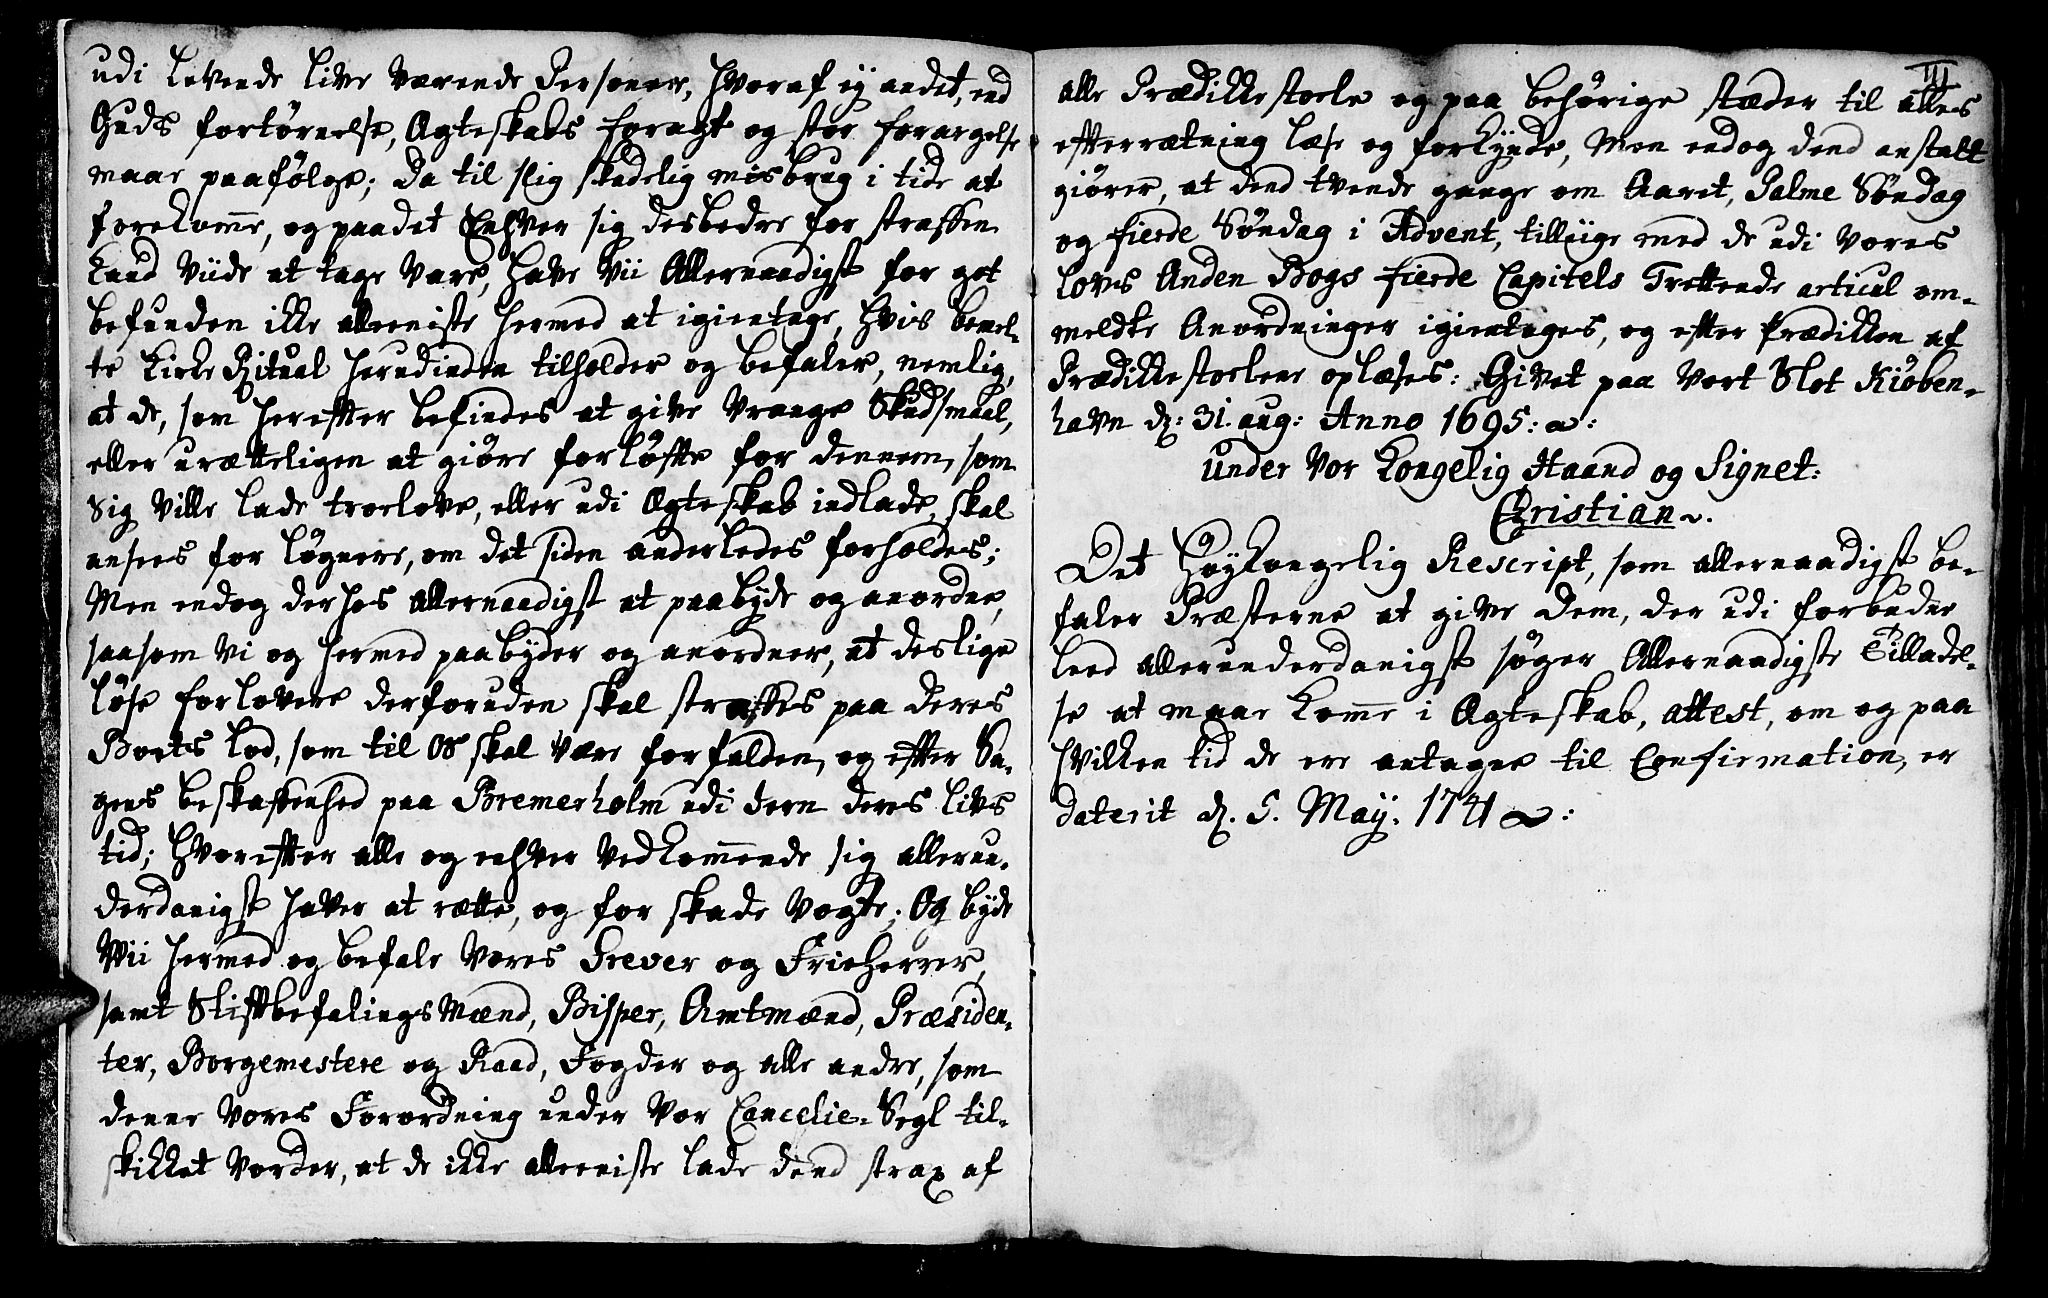 udi levende live værende Personer, hvoraf ej andet, end
Guds fortørnelse, Ægteskabs foragt og stor forargelse
maae paafølge; Da til slig skadelig misbrug i tide at
forekomme, og paadet Enhver sig desbedre for straffen
kand viide at tage vare, have Vii Allernaadigst for got
befunden ikke alleeniste hermed at igientage, hvis bemel-
te Kirke Ritual herudinden tilholder og befaler, nemlig,
at de, som herefter befindes at give vrange Skudsmaal,
eller urætteligen at giøre forløfte for dennem, som
Sig ville lade troelove, eller udi Ægteskab indlade, skal
ansees for løgnere, om det siden anderledes forholdes;
Men endog derhos allernaadigst at paabyde og anordne,
saasom Vi og hermed paabyder og anordner, at deslige
løse forlovere derforuden skal straffes paa deres
Boets lod, som til Os skal være forfalden, og efter Sa-
gens beskaffenhed paa Bremerholm udi Jern deres livs
tid; Hvorefter alle og enhver vedkommende sig allerun-
derdanigst haver at rætte, og for skade vogte; Og byde
Wii hermed og befale vores Grever og Frieherrer,
samt StiftbefalingsMænd, Bisper, Amtmænd, Præsiden-
ter, Borgemestere og Raad, Fogder og alle andre, som
denne vores Forordning under Vor Cancelie-Segl til-
skikket vorder, at de ikke alleeniste lade dend strax af
III
alle Prædikkestoele og paa behørige stæder til alles
efterrætning læse og forkynde, Men endog dend anstalt
giører, at dend tvende gange om Aaret, Palme Søndag
og fierde Søndag i Advent, tilliige med de udi vores
lovs Anden Bogs fierde Capitels Trettende articul om-
meldte Anordninger igientages, og efter Prædikken af
Prædikkestoelene oplæses: Givet paa Vort Slot Kiøben-
havn d: 31. aug: Anno 1695:
under Vor Kongelig Haand og Signet:
Christian
Det Høykongelig Rescript, som allernaadigst be-
faler Præsterne at give Dem, der udi forbuden
leed allerunderdanigst søger Allernaadigste Tilladel-
se at maae komme i Ægteskab, attest, om og paa
hvilken tid de ere antagne til Confirmation, er
daterit d. 5. May. 1741